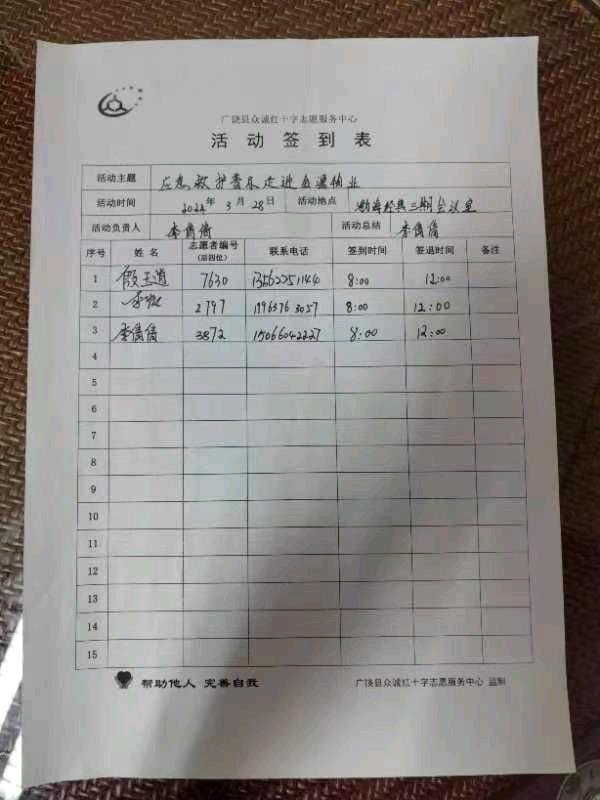 广饶县众诚红十字志愿服务中心
活动签到表
活动主题 应急救护普及走进 物业
活动时间 2024年3月28日 活动地点 渤海经典三期会议室
活动负责人 李倩倩 活动总结 李倩倩
序号 姓名 志愿者编号(后四位) 联系电话 签到时间 签退时间 备注
1 殷玉道 7630 13562251144 8:00 12:00
2 李 2797 1996576 3057 8:00 12:00
3 李倩倩 3872 15066042227 8:00 12:00
4
5
6
7
8
9
10
11
12
13
14
15
帮助他人 完善自我 广饶县众诚红十字志愿服务中心 监制